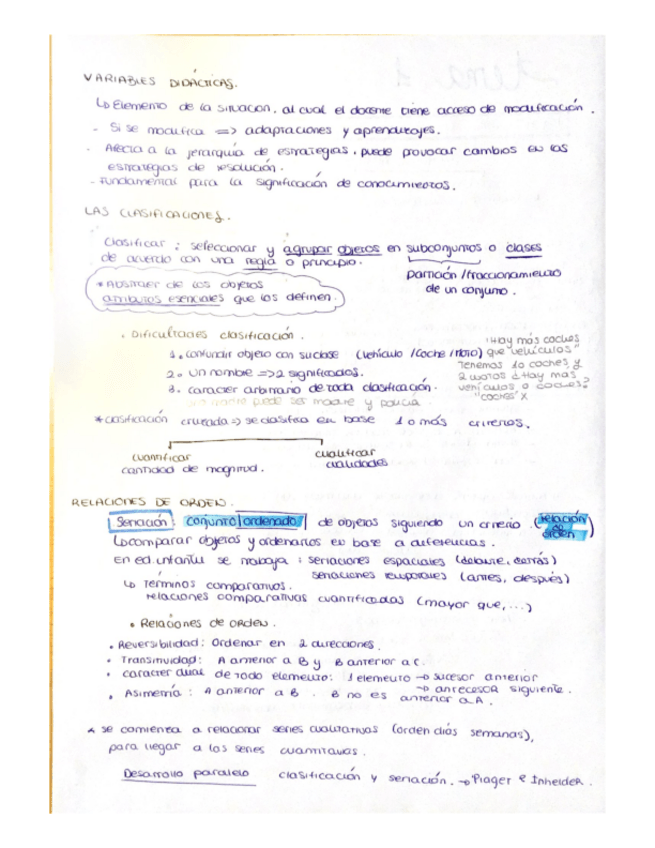 VARIABLES DIDÁCTICAS.
↳ Elemento de la situación, al cual el docente tiene acceso de modificación.
- Si se modifica => adaptaciones y aprendizajes.
- Afecta a la jerarquía de estrategias, puede provocar cambios en las
estrategias de resolución.
- Fundamental para la significación de conocimientos.
LAS CLASIFICACIONES.
Clasificar: seleccionar y agrupar objetos en subconjuntos o clases
de acuerdo con una regla o principio.
partición / fraccionamiento
de un conjunto.
* Abstraer de los objetos
atributos esenciales que los definen.
• Dificultades clasificación.
1. confundir objeto con su clase (vehículo / coche / moto)
2. un nombre => 2 significados.
3. carácter arbitrario de toda clasificación.
una madre puede ser madre y policía.
"Hay más coches
que vehículos"
Tenemos 10 coches y
2 motos ¿Hay más
vehículos o coches?
"coches" X
* clasificación cruzada => se clasifica en base 1 o más criterios.
cuantificar
cantidad de magnitud.
cualificar
cualidades
RELACIONES DE ORDEN.
Seriación: conjunto ordenado de objetos siguiendo un criterio. (relación de orden)
↳ comparar objetos y ordenarlos en base a diferencias.
En ed. infantil se trabaja: seriaciones espaciales (delante, detrás)
seriaciones temporales (antes, después)
↳ Términos comparativos.
relaciones comparativas cuantificadas (mayor que, ...)
• Relaciones de orden.
• Reversibilidad: Ordenar en 2 direcciones.
• Transitividad: A anterior a B y B anterior a C.
• carácter dual de todo elemento: 1 elemento → sucesor anterior
→ antecesor siguiente.
• Asimetría: A anterior a B. B no es anterior a A.
* se comienza a relacionar series cualitativas (orden días semanas),
para llegar a las series cuantitativas.
Desarrollo paralelo clasificación y seriación. → Piaget e Inhelder.